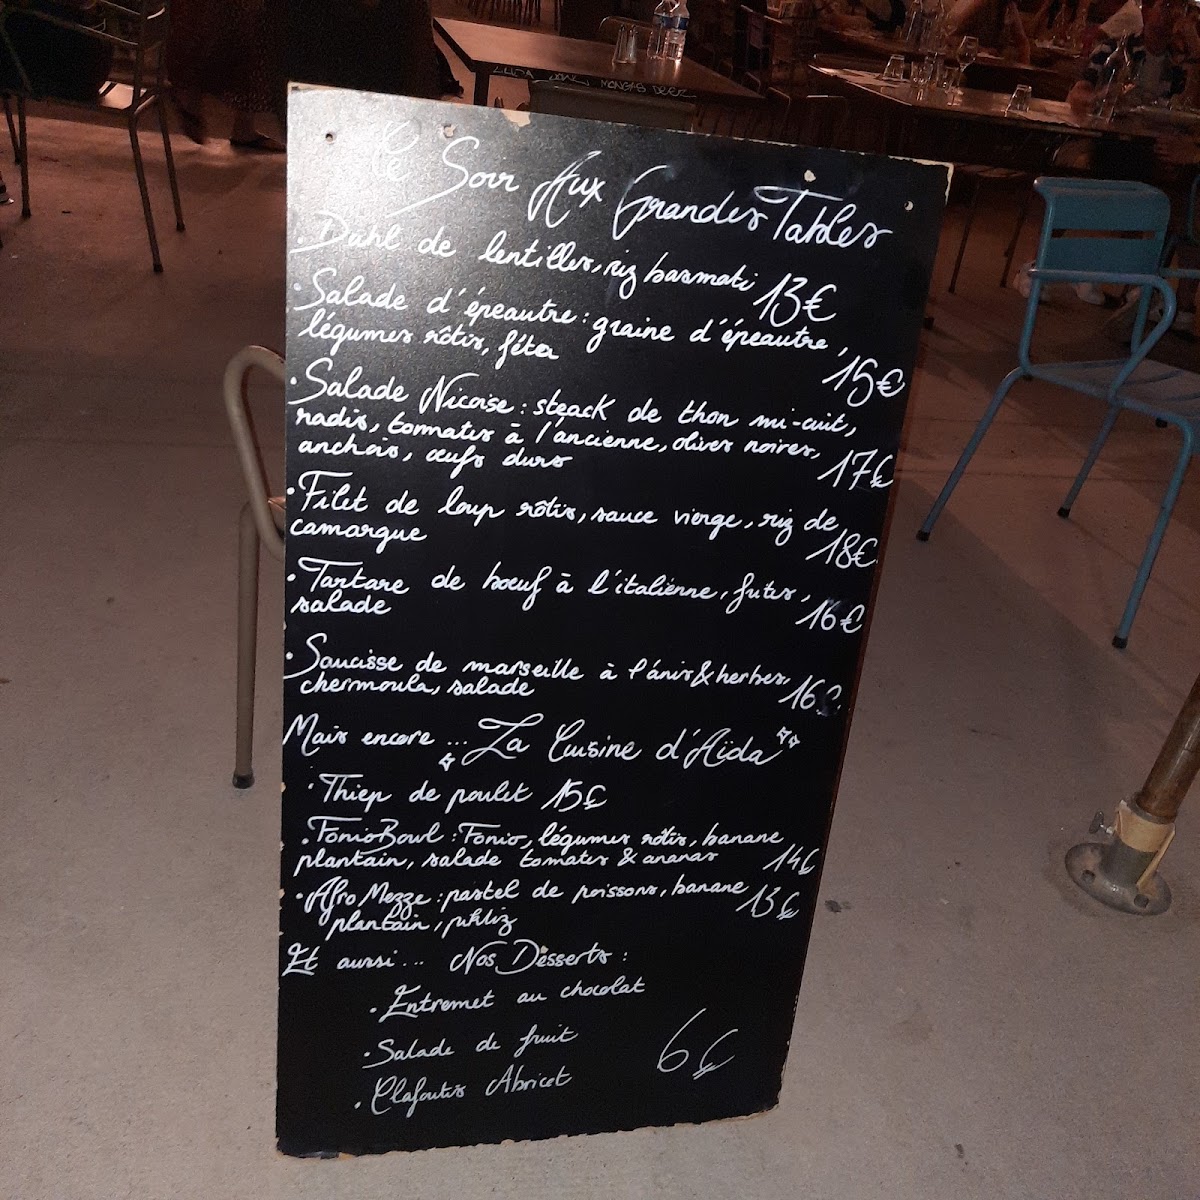 Ce Soir Aux Grandes Tables
. Dahl de lentilles, riz basmati 13€
. Salade d'épeautre : graine d'épeautre,
légumes rôtis, féta 15€
. Salade Nicoise : steack de thon mi-cuit,
radis, tomates à l'ancienne, olives noires,
anchois, œufs durs 17€
. Filet de loup rôtis, sauce vierge, riz de
camargue 18€
. Tartare de bœuf à l'italienne, frites,
salade 16€
. Saucisse de marseille à l'anis & herbes,
chermoula, salade 16€
Mais encore ... La Cuisine d'Aïda
. Thiep de poulet 15€
. Fonio Bowl : Fonio, légumes rôtis, banane
plantain, salade tomates & ananas 14€
. Afro Mezze : pastel de poissons, banane
plantain, 13€
Et aussi ... Nos Desserts :
. Entremet au chocolat
. Salade de fruit 6€
. Clafoutis Abricot